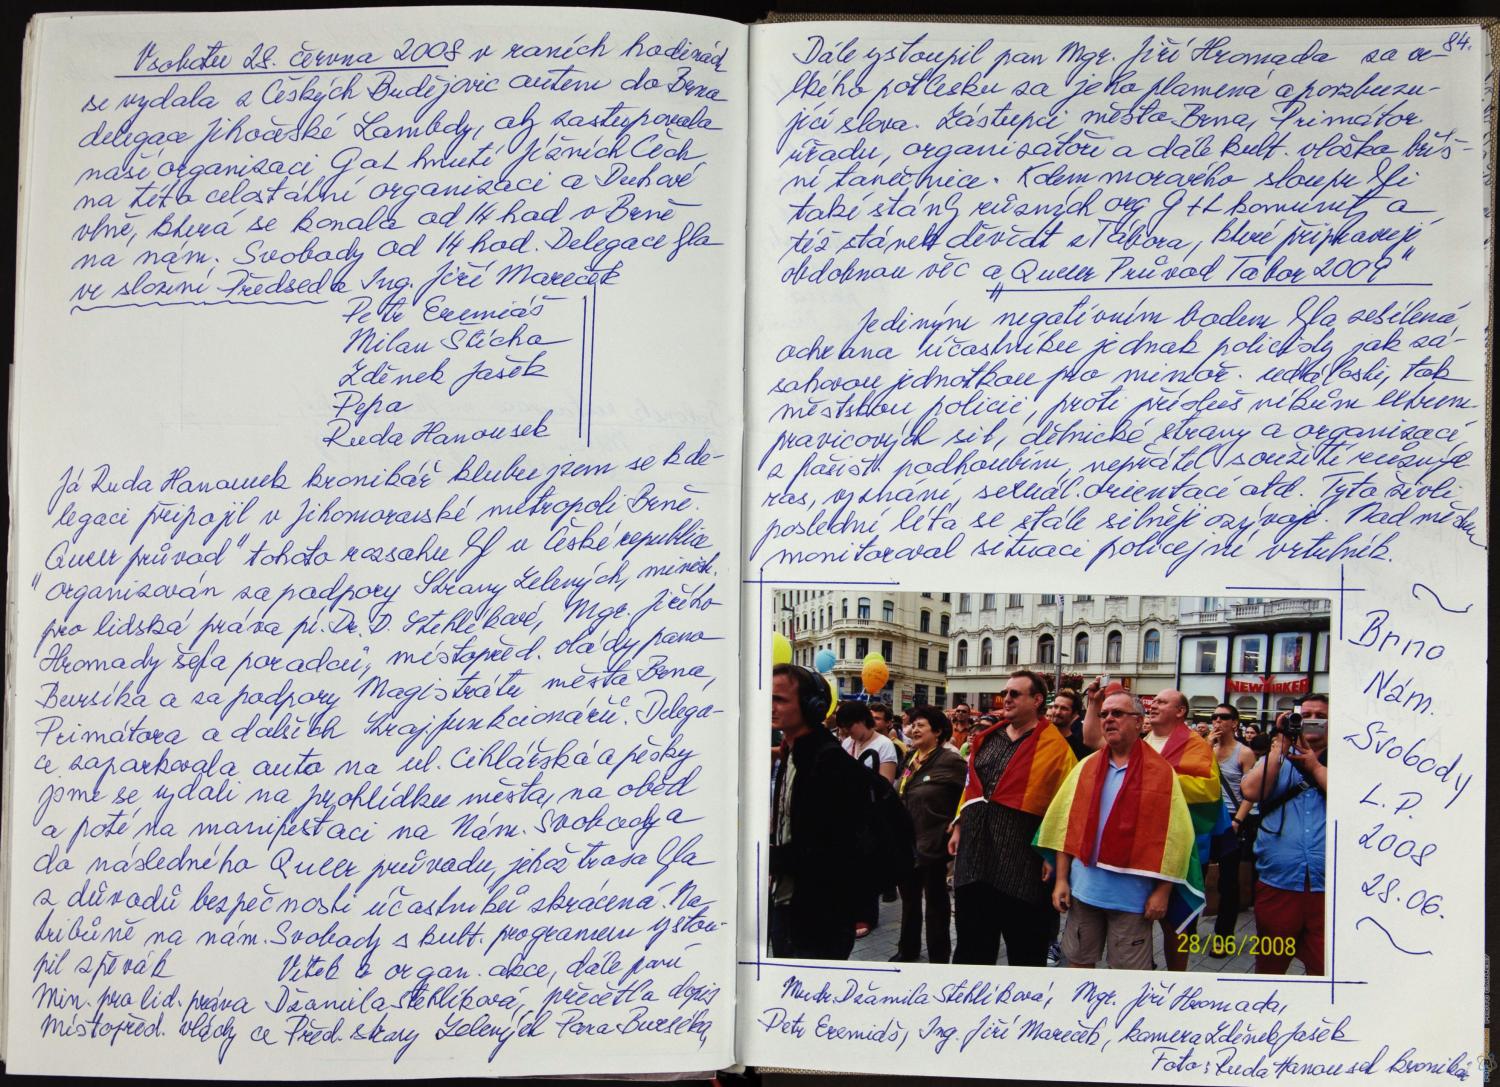 V sobotu 28. června 2008 v raních hodinách
se vydala z Českých Budějovic autem do Brna
delegace Jihočeské Lambdy, aby zastupovala
naší organizaci G a L hnutí Jižních Čech,
na této celostátní organizaci a Duhové
vlně, která se konala od 14 hod v Brně
na nám. Svobody od 14 hod. Delegace byla
ve složení Předseda Ing. Jiří Mareček
Petr Eremiáš
Milan Štícha
Zdeněk Jašek
Pepa
Ruda Hanousek
Já Ruda Hanousek kronikář klubu jsem se k de-
legaci připojil v Jihomoravské metropoli Brně.
„Queer průvod" tohoto rozsahu byl v České republice
organizován za podpory Strany Zelených, minist.
pro lidská práva pí. Dr. D. Stehlíkové, Mgr. Jiřího
Hromady šéfa poradců, místopřed. vlády pana
Bursíka a za podpory Magistrátu města Brna,
Primátora a dalších kraj. funkcionářů. Delega-
ce zaparkovala auto na ul. Cihlářská a pěšky
jsme se vydali na prohlídku města, na oběd
a poté na manifestaci na Nám. Svobody a
do následného Queer průvodu, jehož trasa byla
z důvodů bezpečnosti účastníků zkrácená. Na
tribůně na nám. Svobody s kult. programem vystou-
pil zpěvák Vítek z organ. akce, dále paní
Min. pro lid. práva Džamila Stehlíková, přečetla dopis
místopřed. vlády a Před. strany Zelených Pana Bursíka,
84.
Dále vystoupil pan Mgr. Jiří Hromada za ve-
lkého potlesku za jeho plamená a povzbuzu-
jící slova. Zástupci města Brna, Primátor.
úřadu, organizátoři a dále kult. vložka břiš-
ní tanečnice. Kolem moravého sloupu byli
také stánky různých org G+L komunity a
též stánek děvčat z Tábora, které připravují
obdobnou věc a „Queer Průvod Tábor 2009"
Jediným negativním bodem byla zesílená
ochrana účastníku jednak policisty jak zá-
sahovou jednotkou pro mimoř. události, tak
městskou policií, proti příslušníkům extrem.
pravicových sil, dělnické strany a organizací,
z fašist. podhoubím, nepřátel soužití různých
ras, vyznání, sexuál. orientací atd. Tyto živli
poslední léta se stále silněji ozývají. Nad městem
monitoroval situaci policejní vrtulník.
NEW YORKER
28/06/2008
Brno
Nám.
Svobody
L.P.
2008
28.06.
Mudr. Džamila Stehlíková, Mgr. Jiří Hromada,
Petr Eremiáš, Ing. Jiří Mareček, kamera Zdeněk Jašek
Foto: Ruda Hanousek kronikář